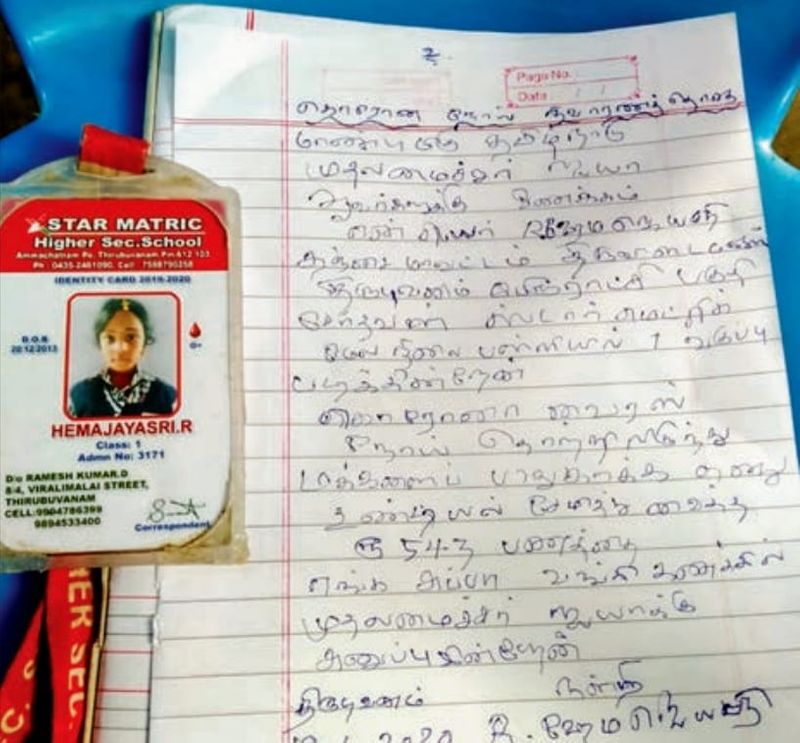 STAR MATRIC
Higher Sec.School
Ammachatram Po. Thirubuvanam Pin:612 103.
Ph : 0435-2461090, Cell: 7598790258
IDENTITY CARD 2019-2020
D.O.B
20/12/2013
O+
HEMAJAYASRI.R
Class: 1
Admn No: 3171
D/o RAMESH KUMAR.D
8/4, VIRALIMALAI STREET,
THIRUBUVANAM
CELL:9904786399
9894533400
Correspondent
HER SEC
உ
Page No.
Date / /
நோய் நிவாரணத் தொகை
மாண்புமிகு தமிழ்நாடு
முதலமைச்சர் ஐயா
அவர்களுக்கு வணக்கம்
என் பெயர் R.ஹேமஜெயஸ்ரீ
தஞ்சை மாவட்டம்
திருபுவனம் பேரூராட்சி பகுதி
ஸ்டார் மெட்ரிக்
மேல்நிலை பள்ளியில் 1 வகுப்பு
படிக்கின்றேன்
கொரோனா வைரஸ்
நோய் தொற்றிலிருந்து
மக்களைப் பாதுகாக்க எனது
உண்டியல் சேமித்து வைத்த
ரூ 543 பணத்தை
எங்க அப்பா வங்கி கணக்கில்
முதலமைச்சர் ஐயாக்கு
அனுப்புகின்றேன்
திருபுவனம் நன்றி
2020 R.ஹேமஜெயஸ்ரீ